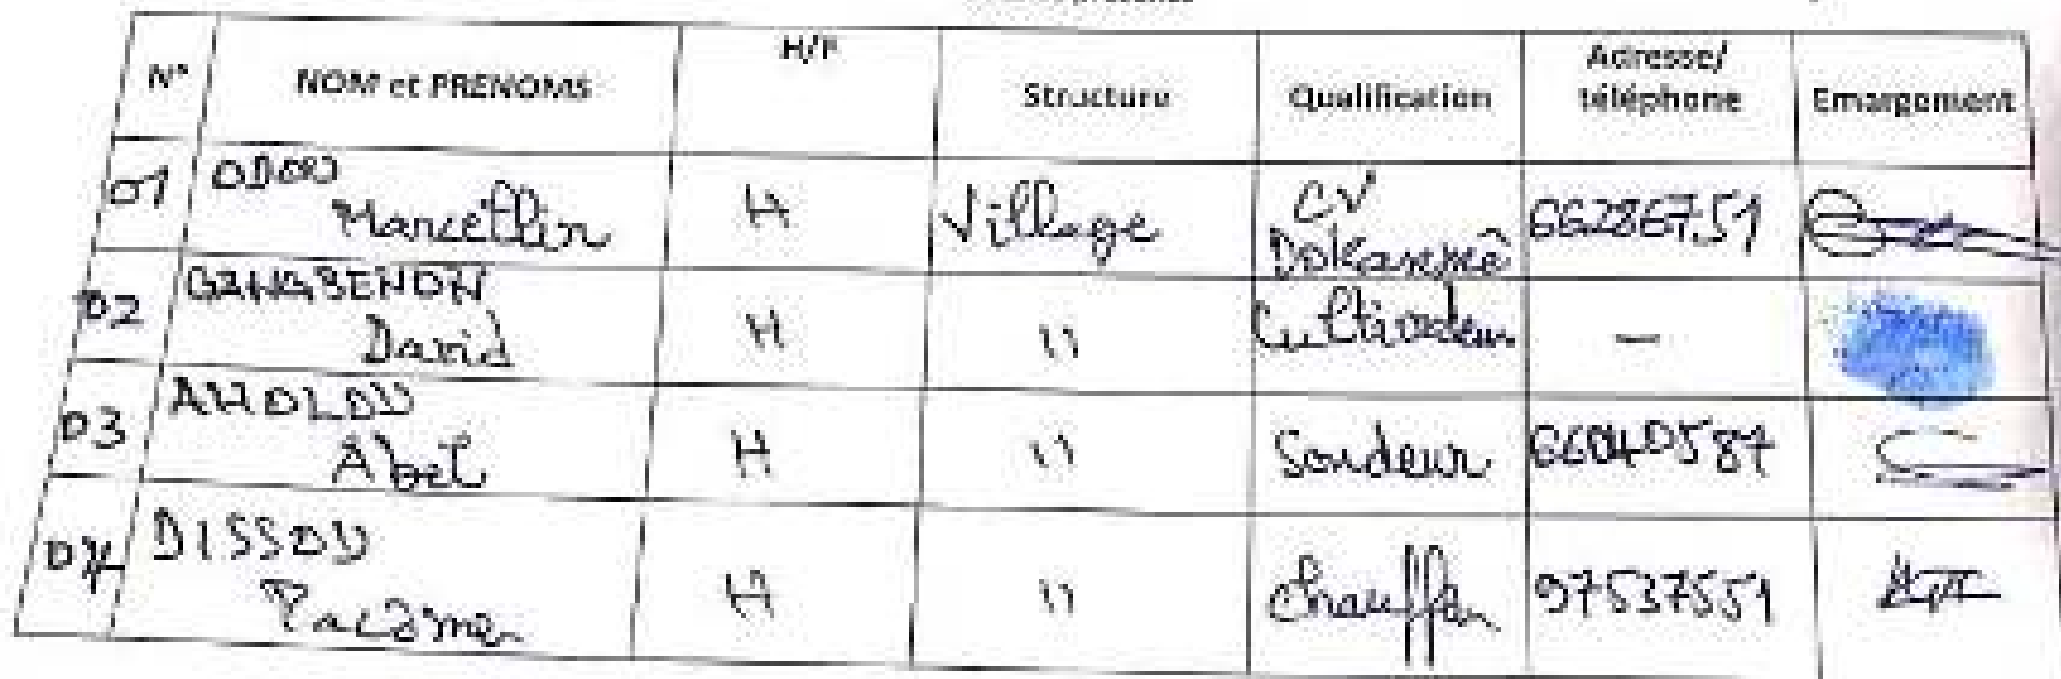 présence
N° NOM et PRENOMS H/F Structure Qualification Adresse/ téléphone Emargement
01 ODOU Marcellin H Village CV Dokanmè 66286751
02 David H 11 Cultivateur —
03 AHOLOU Abel H 11 Soudeur 66040587
04 DISSOU Pacôme H 11 Chauffeur 97537551